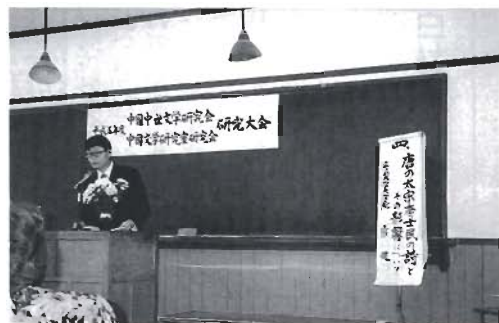 平成五年度
中国中世文学研究会
中国文学研究室研究会
研究大会
四、唐の太宗李士民の詩と
その影響について